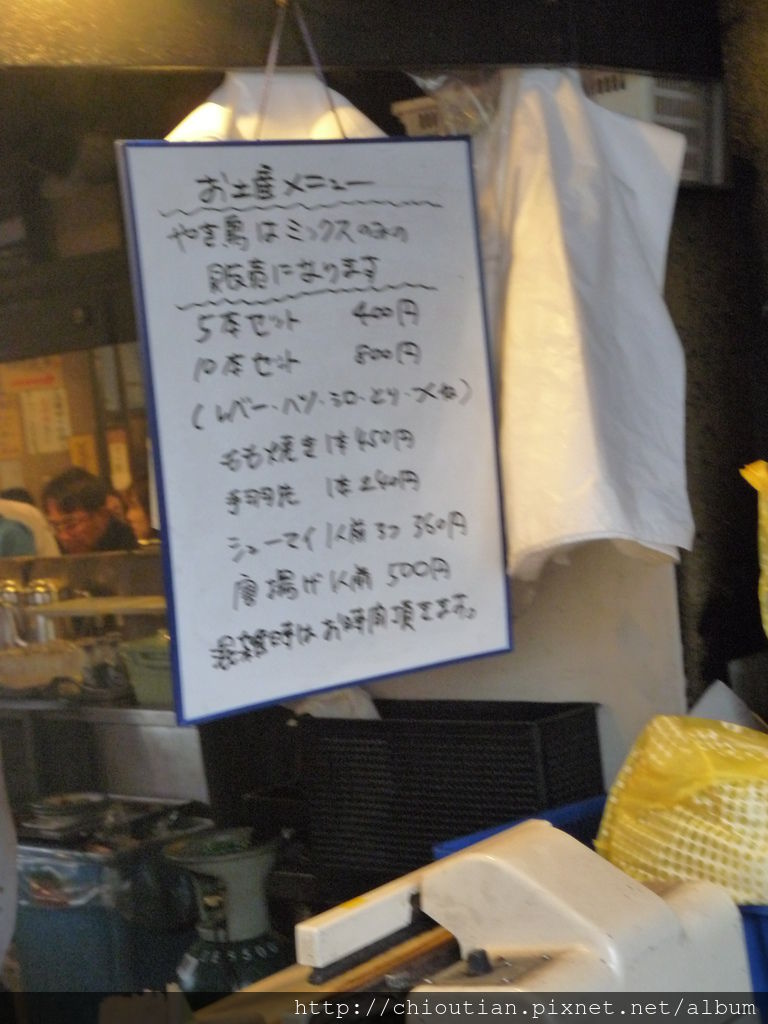 お土産メニュー
やき鳥はミックスのみの
販売になります
5本セット 400円
10本セット 800円
(レバー・ハツ・シロ・とり・つくね)
もも焼き 1本 450円
手羽先 1本 240円
シューマイ 1人前 3コ 360円
唐揚げ 1人前 500円
混雑時はお時間頂きます。
http://chioutian.pixnet.net/album